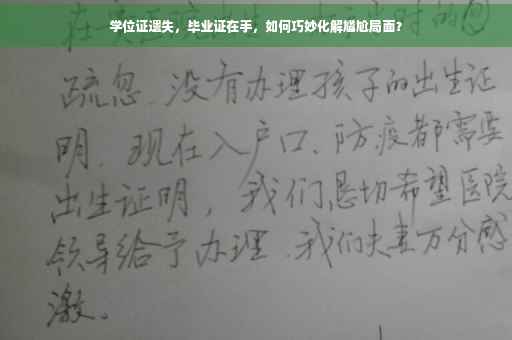 学位证遗失，毕业证在手，如何巧妙化解尴尬局面？
疏忽、没有办理孩子的出生证
明、现在入户口、防疫都需要
出生证明，我们恳切希望医院
领导给予办理、我们夫妻万分感
激。